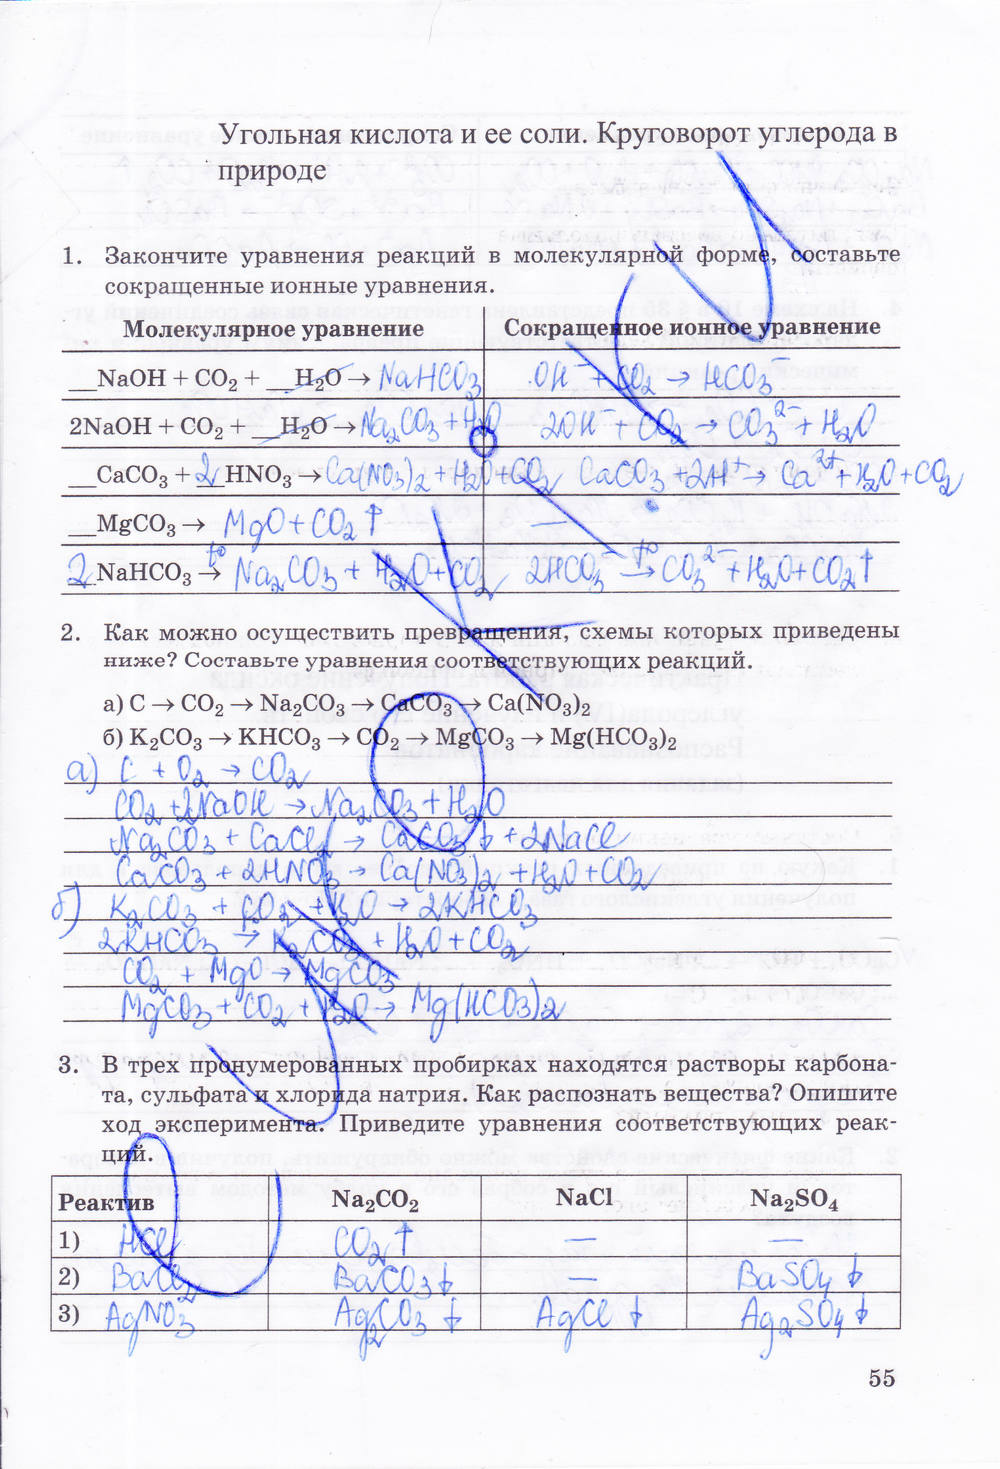 Угольная кислота и ее соли. Круговорот углерода в
природе
1. Закончите уравнения реакций в молекулярной форме, составьте
сокращенные ионные уравнения.
Молекулярное уравнение Сокращенное ионное уравнение
__NaOH + CO₂ + __H₂O → NaHCO₃ OH⁻ + CO₂ → HCO₃⁻
2NaOH + CO₂ + __H₂O → Na₂CO₃ + H₂O 2OH⁻ + CO₂ → CO₃²⁻ + H₂O
__CaCO₃ + 2HNO₃ → Ca(NO₃)₂ + H₂O + CO₂ CaCO₃ + 2H⁺ → Ca²⁺ + H₂O + CO₂
__MgCO₃ → MgO + CO₂↑ —
2NaHCO₃ →t° Na₂CO₃ + H₂O + CO₂ 2HCO₃⁻ →t° CO₃²⁻ + H₂O + CO₂↑
2. Как можно осуществить превращения, схемы которых приведены
ниже? Составьте уравнения соответствующих реакций.
а) C → CO₂ → Na₂CO₃ → CaCO₃ → Ca(NO3)₂
б) K₂CO₃ → KHCO₃ → CO₂ → MgCO₃ → Mg(HCO₃)₂
а) C + O₂ → CO₂
CO₂ + 2NaOH → Na₂CO₃ + H₂O
Na₂CO₃ + CaCl₂ → CaCO₃↓ + 2NaCl
CaCO₃ + 2HNO₃ → Ca(NO₃)₂ + H₂O + CO₂
б) K₂CO₃ + CO₂ + H₂O → 2KHCO₃
2KHCO₃ → K₂CO₃ + H₂O + CO₂
CO₂ + MgO → MgCO₃
MgCO₃ + CO₂ + H₂O → Mg(HCO₃)₂
3. В трех пронумерованных пробирках находятся растворы карбона-
та, сульфата и хлорида натрия. Как распознать вещества? Опишите
ход эксперимента. Приведите уравнения соответствующих реак-
ций.
Реактив Na₂CO₂ NaCl Na₂SO₄
1) HCl CO₂↑ — —
2) BaCl₂ BaCO₃↓ — BaSO₄↓
3) AgNO₃ Ag₂CO₃↓ AgCl↓ Ag₂SO₄↓
55